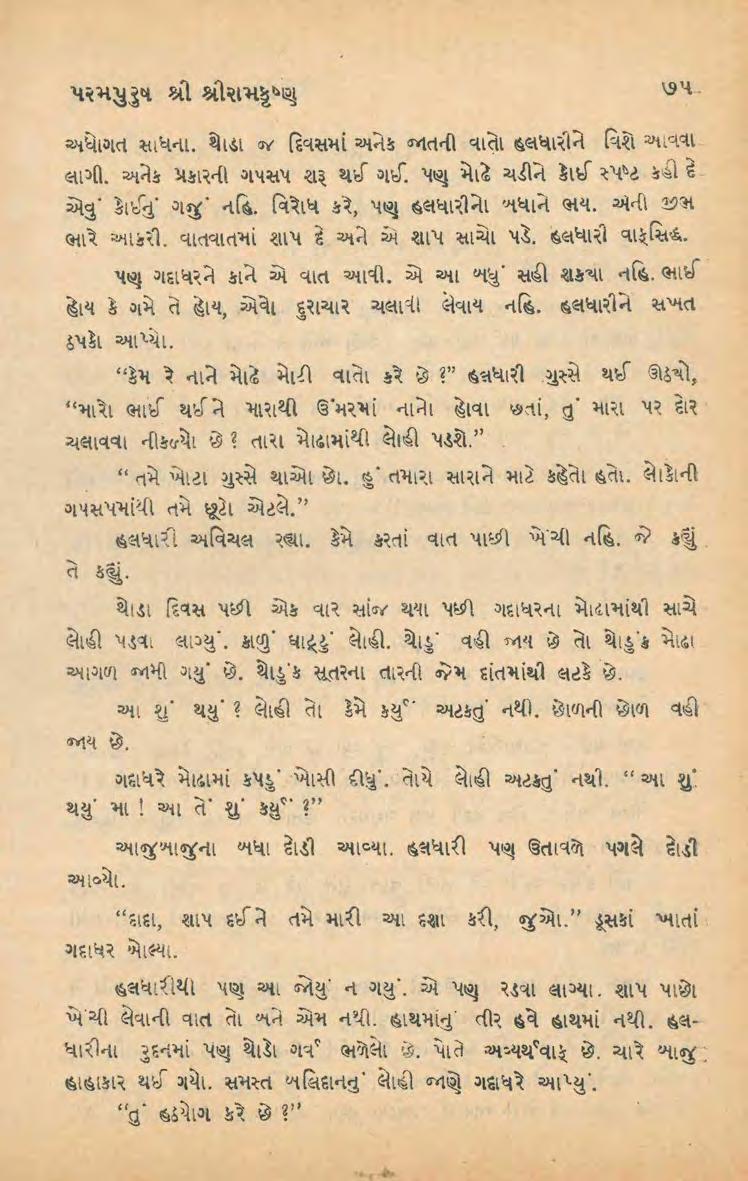 પરમપુરુષ શ્રી શ્રીરામકૃષ્ણ ૭૫
અધોગત સાધના. થોડા જ દિવસમાં અનેક જાતની વાતો હલધારીને વિશે આવવા
લાગી. અનેક પ્રકારની ગપસપ શરૂ થઈ ગઈ. પણ મોઢે ચડીને કોઈ સ્પષ્ટ કહી દે
એવું કોઈનું ગજું નહિ. વિરોધ કરે, પણ હલધારીનો બધાને ભય. એની જીભ
ભારે આકરી. વાતવાતમાં શાપ દે અને એ શાપ સાચો પડે. હલધારી વાક્‌સિદ્ધ.
પણ ગદાધરને કાને એ વાત આવી. એ આ બધું સહી શક્યા નહિ. ભાઈ
હોય કે ગમે તે હોય, એવો દુરાચાર ચલાવી લેવાય નહિ. હલધારીને સખત
ઠપકો આપ્યો.
“કેમ રે નાને મોઢે મોટી વાતો કરે છે ?” હલધારી ગુસ્સે થઈ ઊઠ્યો,
“મારો ભાઈ થઈને મારાથી ઉંમરમાં નાનો હોવા છતાં, તું મારા પર દોર
ચલાવવા નીકળ્યો છે ? તારા મોઢામાંથી લોહી પડશે.”
“ તમે ખોટા ગુસ્સે થાઓ છો. હું તમારા સારાને માટે કહેતો હતો. લોકોની
ગપસપમાંથી તમે છૂટો એટલે.”
હલધારી અવિચલ રહ્યા. કેમે કરતાં વાત પાછી ખેંચી નહિ. જે કહ્યું
તે કહ્યું.
થોડા દિવસ પછી એક વાર સાંજ થયા પછી ગદાધરના મોઢામાંથી સાચે
લોહી પડવા લાગ્યું. કાળું ઘાટ્ટું લોહી. થોડું વહી જાય છે તો થોડુંક મોઢા
આગળ જામી ગયું છે. થોડુંક સૂતરના તારની જેમ દાંતમાંથી લટકે છે.
આ શું થયું ? લોહી તો કેમે કર્યું અટકતું નથી. છોળની છોળ વહી
જાય છે.
ગદાધરે મોઢામાં કપડું ખોસી દીધું. તોયે લોહી અટકતું નથી. “ આ શું
થયું મા ! આ તેં શું કર્યું ?”
આજુબાજુના બધા દોડી આવ્યા. હલધારી પણ ઉતાવળે પગલે દોડી
આવ્યો.
“દાદા, શાપ દઈને તમે મારી આ દશા કરી, જુઓ.” ડૂસકાં ખાતાં
ગદાધર બોલ્યા.
હલધારીથી પણ આ જોયું ન ગયું. એ પણ રડવા લાગ્યા. શાપ પાછો
ખેંચી લેવાની વાત તો બને એમ નથી. હાથમાંનું તીર હવે હાથમાં નથી. હલ-
ધારીના રુદનમાં પણ થોડો ગર્વ ભળેલો છે. પોતે અવ્યર્થવાક્ છે. ચારે બાજુ
હાહાકાર થઈ ગયો. સમસ્ત બલિદાનનું લોહી જાણે ગદાધરે આપ્યું.
“તું હઠયોગ કરે છે ?”